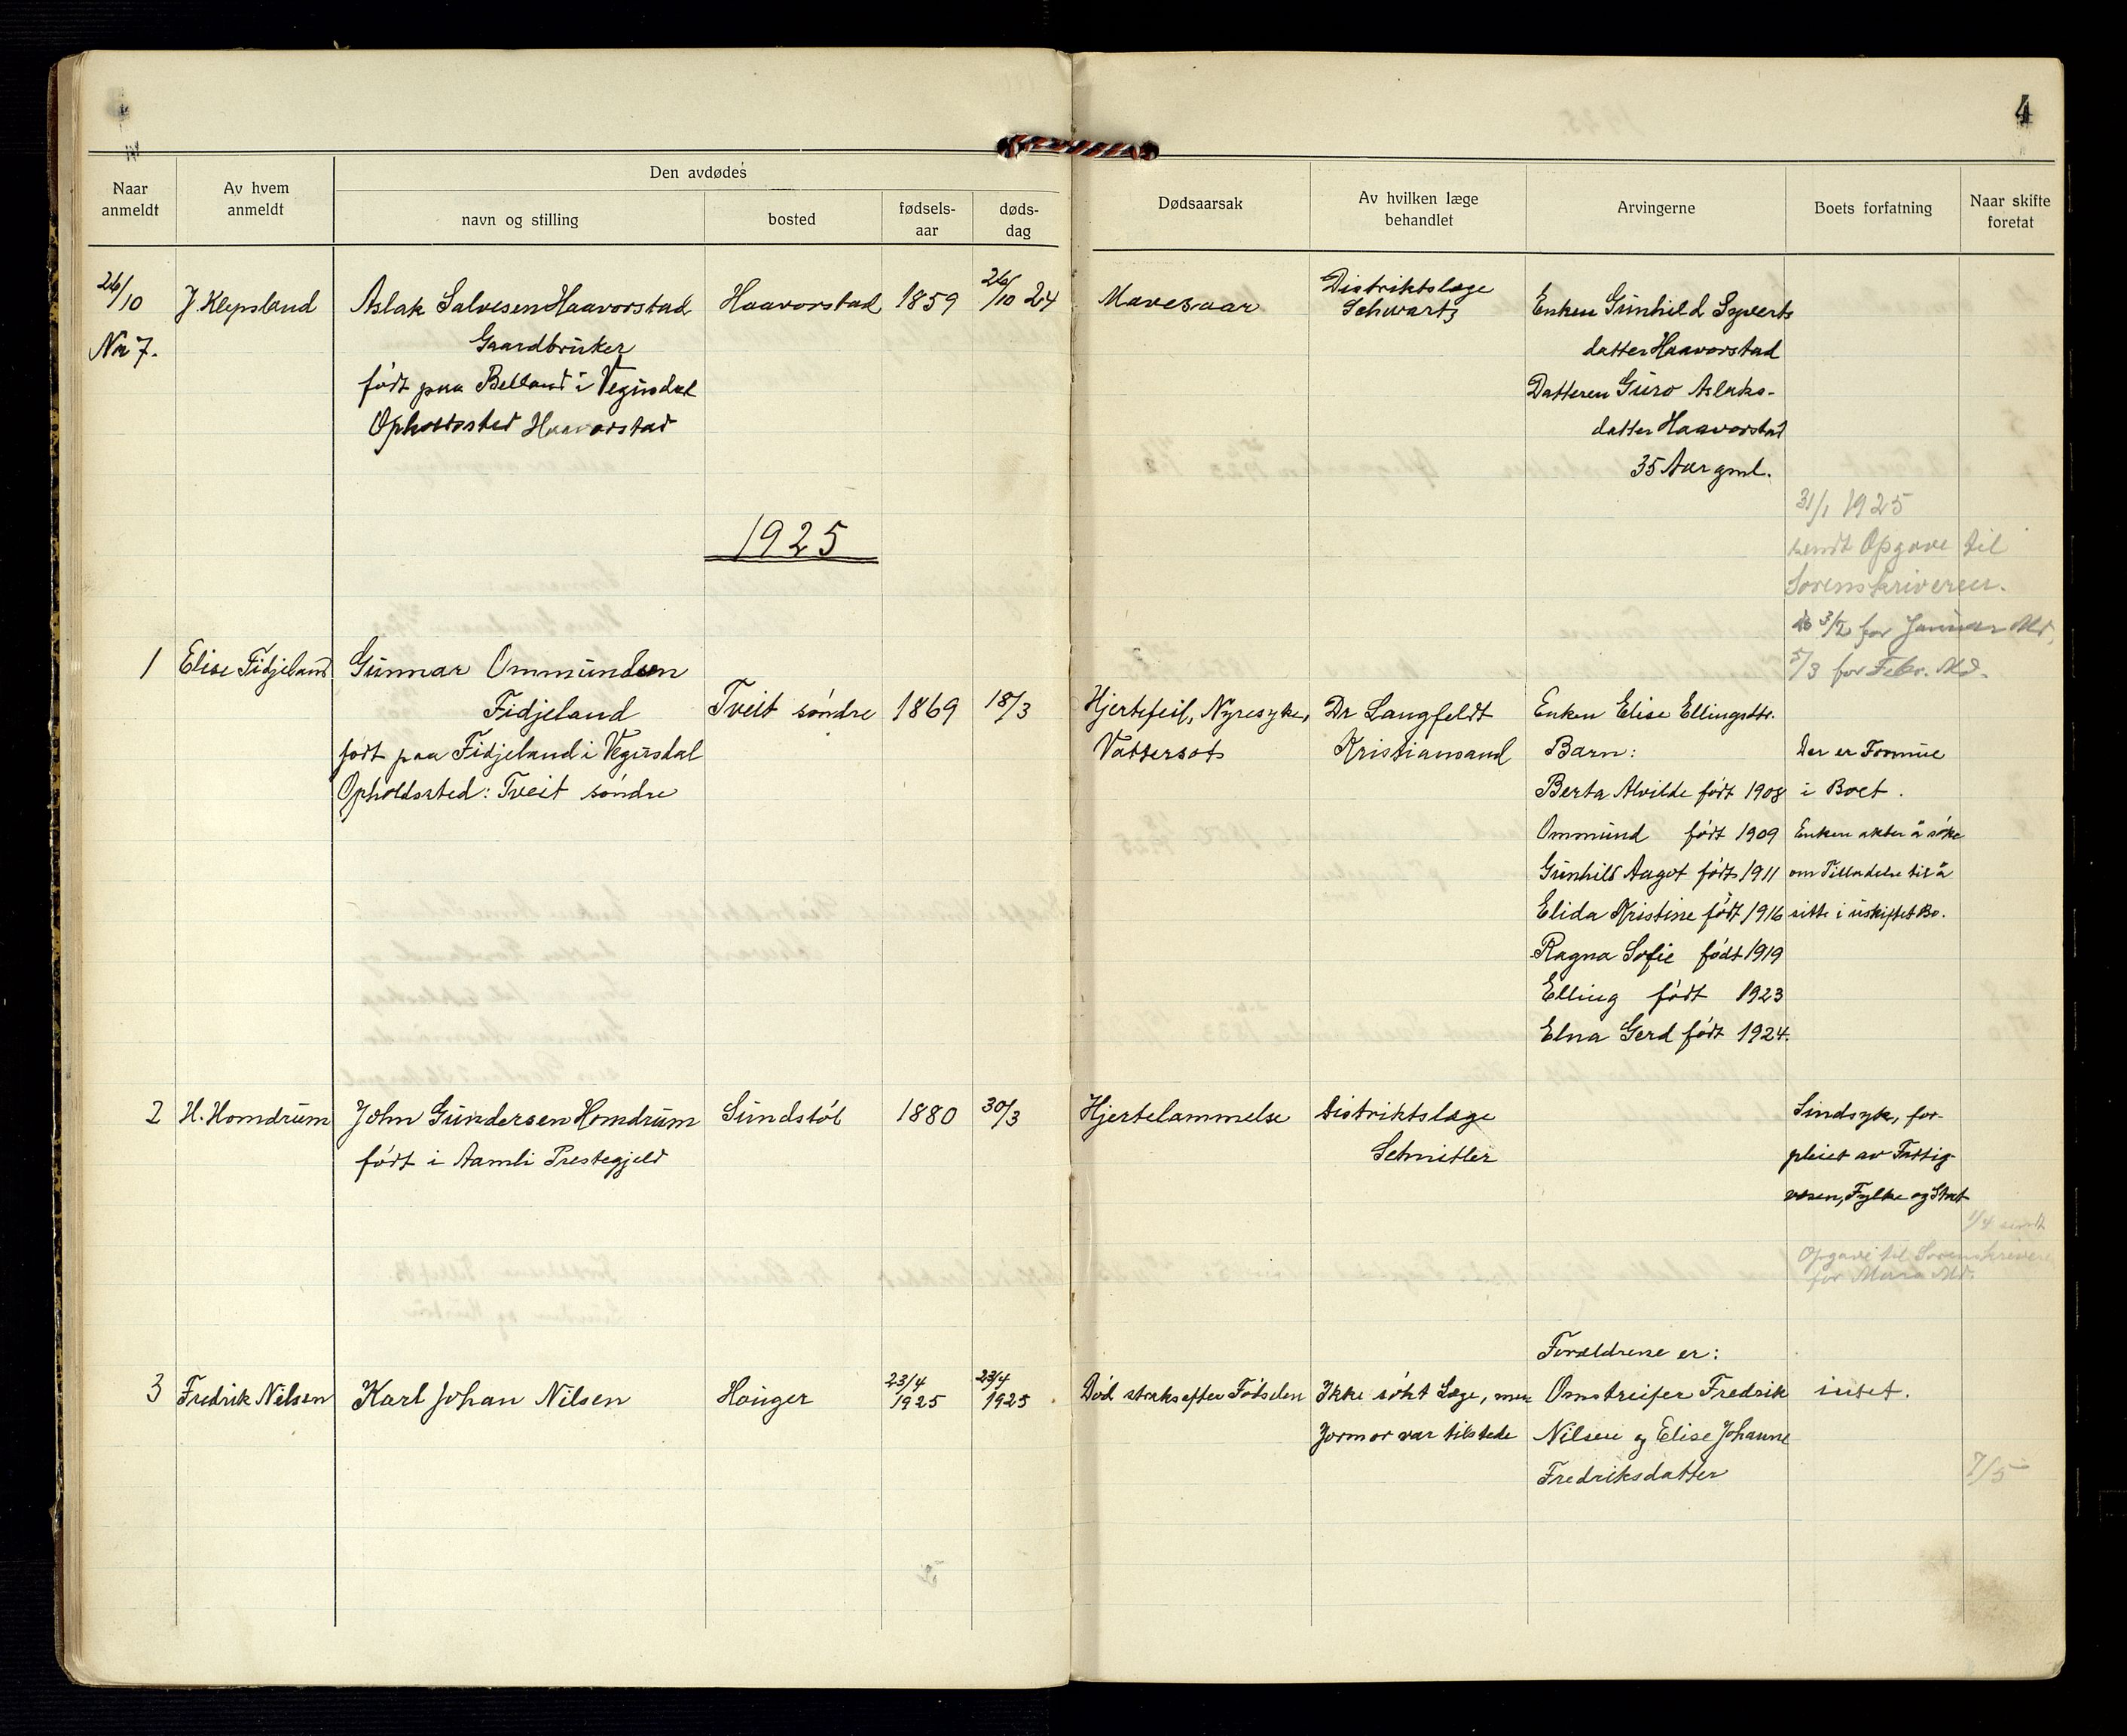 4
Naar anmeldt
Av hvem anmeldt
Den avdødes
navn og stilling
bosted
fødsels-aar
døds-dag
Dødsaarsak
Av hvilken læge behandlet
Arvingerne
Boets forfatning
Naar skifte foretat
26/10
No 7.
J. Klepsland
Aslak Salvesen Haavorstad
Gaardbruker
født paa Belland i Vegusdal
Opholdssted Haavorstad
Haavorstad
1859
26/10 24
Mavesaar
Distriktslæge
Schwartz
Enken Gunhild Syverts
datter Haavorstad
Datteren Guro Aslaks-
datter Haavorstad
35 Aar gml.
1925
31/1 1925
sendt Opgave til
Sorenskriveren.
3/2 for Januar Md.
5/3 for Febr. Md.
1
Elise Fidjeland
Gunnar Ommundsen
Fidjeland
født paa Fidjeland i Vegusdal
Opholdssted: Tveit søndre
Tveit søndre
1869
18/3
Hjertefeil, Nyresyke,
Vattersot
Dr Langfeldt
Kristiansand
Enken Elise Ellingsdtr.
Barn:
Berta Alvilde født 1908
Ommund født 1909
Gunhild Aagot født 1911
Elida Kristine født 1916
Ragna Sofie født 1919
Elling født 1923
Elna Gerd født 1924.
Der er Formue
i Boet.
Enken akter å søke
om Tilladelse til å
sitte i uskiftet Bo.
2
H. Homdrum
John Gundersen Homdrum
født i Aamli Prestegjeld
Sundstøl
1880
30/3
Hjertelammelse
Distriktslæge
Schnitler
Sindsyk, for-
pleiet av Fattig-
vesen, Fylke og Stat
1/4 sendt
Opgave til Sorenskriveren
for Mars Md.
3
Fredrik Nilsen
Karl Johan Nilsen
Hauger
23/4
1925
23/4
1925
Død straks efter Fødselen
Ikke søkt Læge, men
Jormor var tilstede
Forældrene er:
Omstreifer Fredrik
Nilsen og Elise Johanne
Fredriksdatter
intet.
7/5